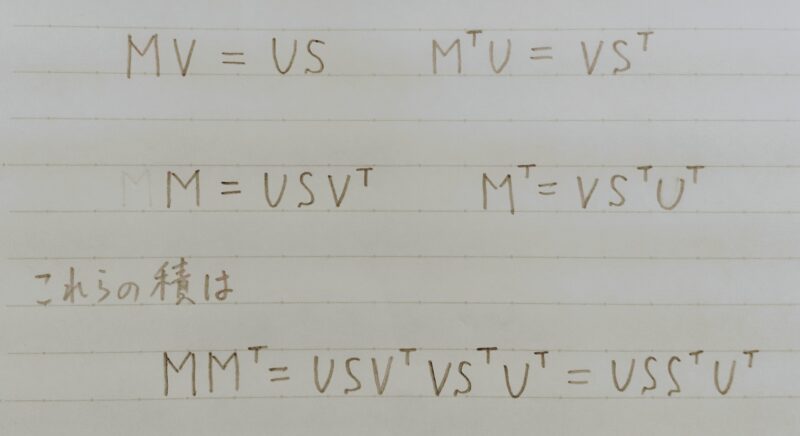 MV = US MᵀU = VSᵀ
M = USVᵀ Mᵀ = VSᵀUᵀ
これらの積は
MMᵀ = USVᵀVSᵀUᵀ = USSᵀUᵀ